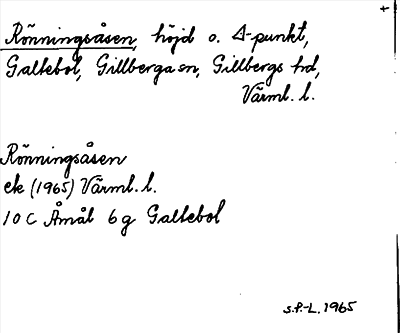 +
Rönningsåsen, höjd o. Δ-punkt,
Galtebol, Gillberga sn, Gillbergs hd,
Värml. l.
Rönningsåsen
ek (1965) Värml. l.
10 C Åmål 6 g Galtebol
S.F.-L. 1965